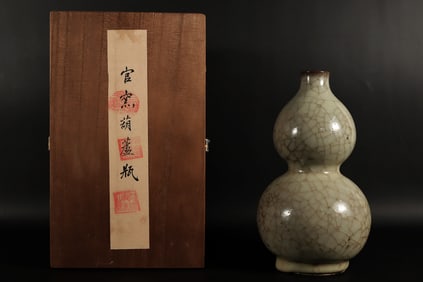 官窯葫蘆瓶